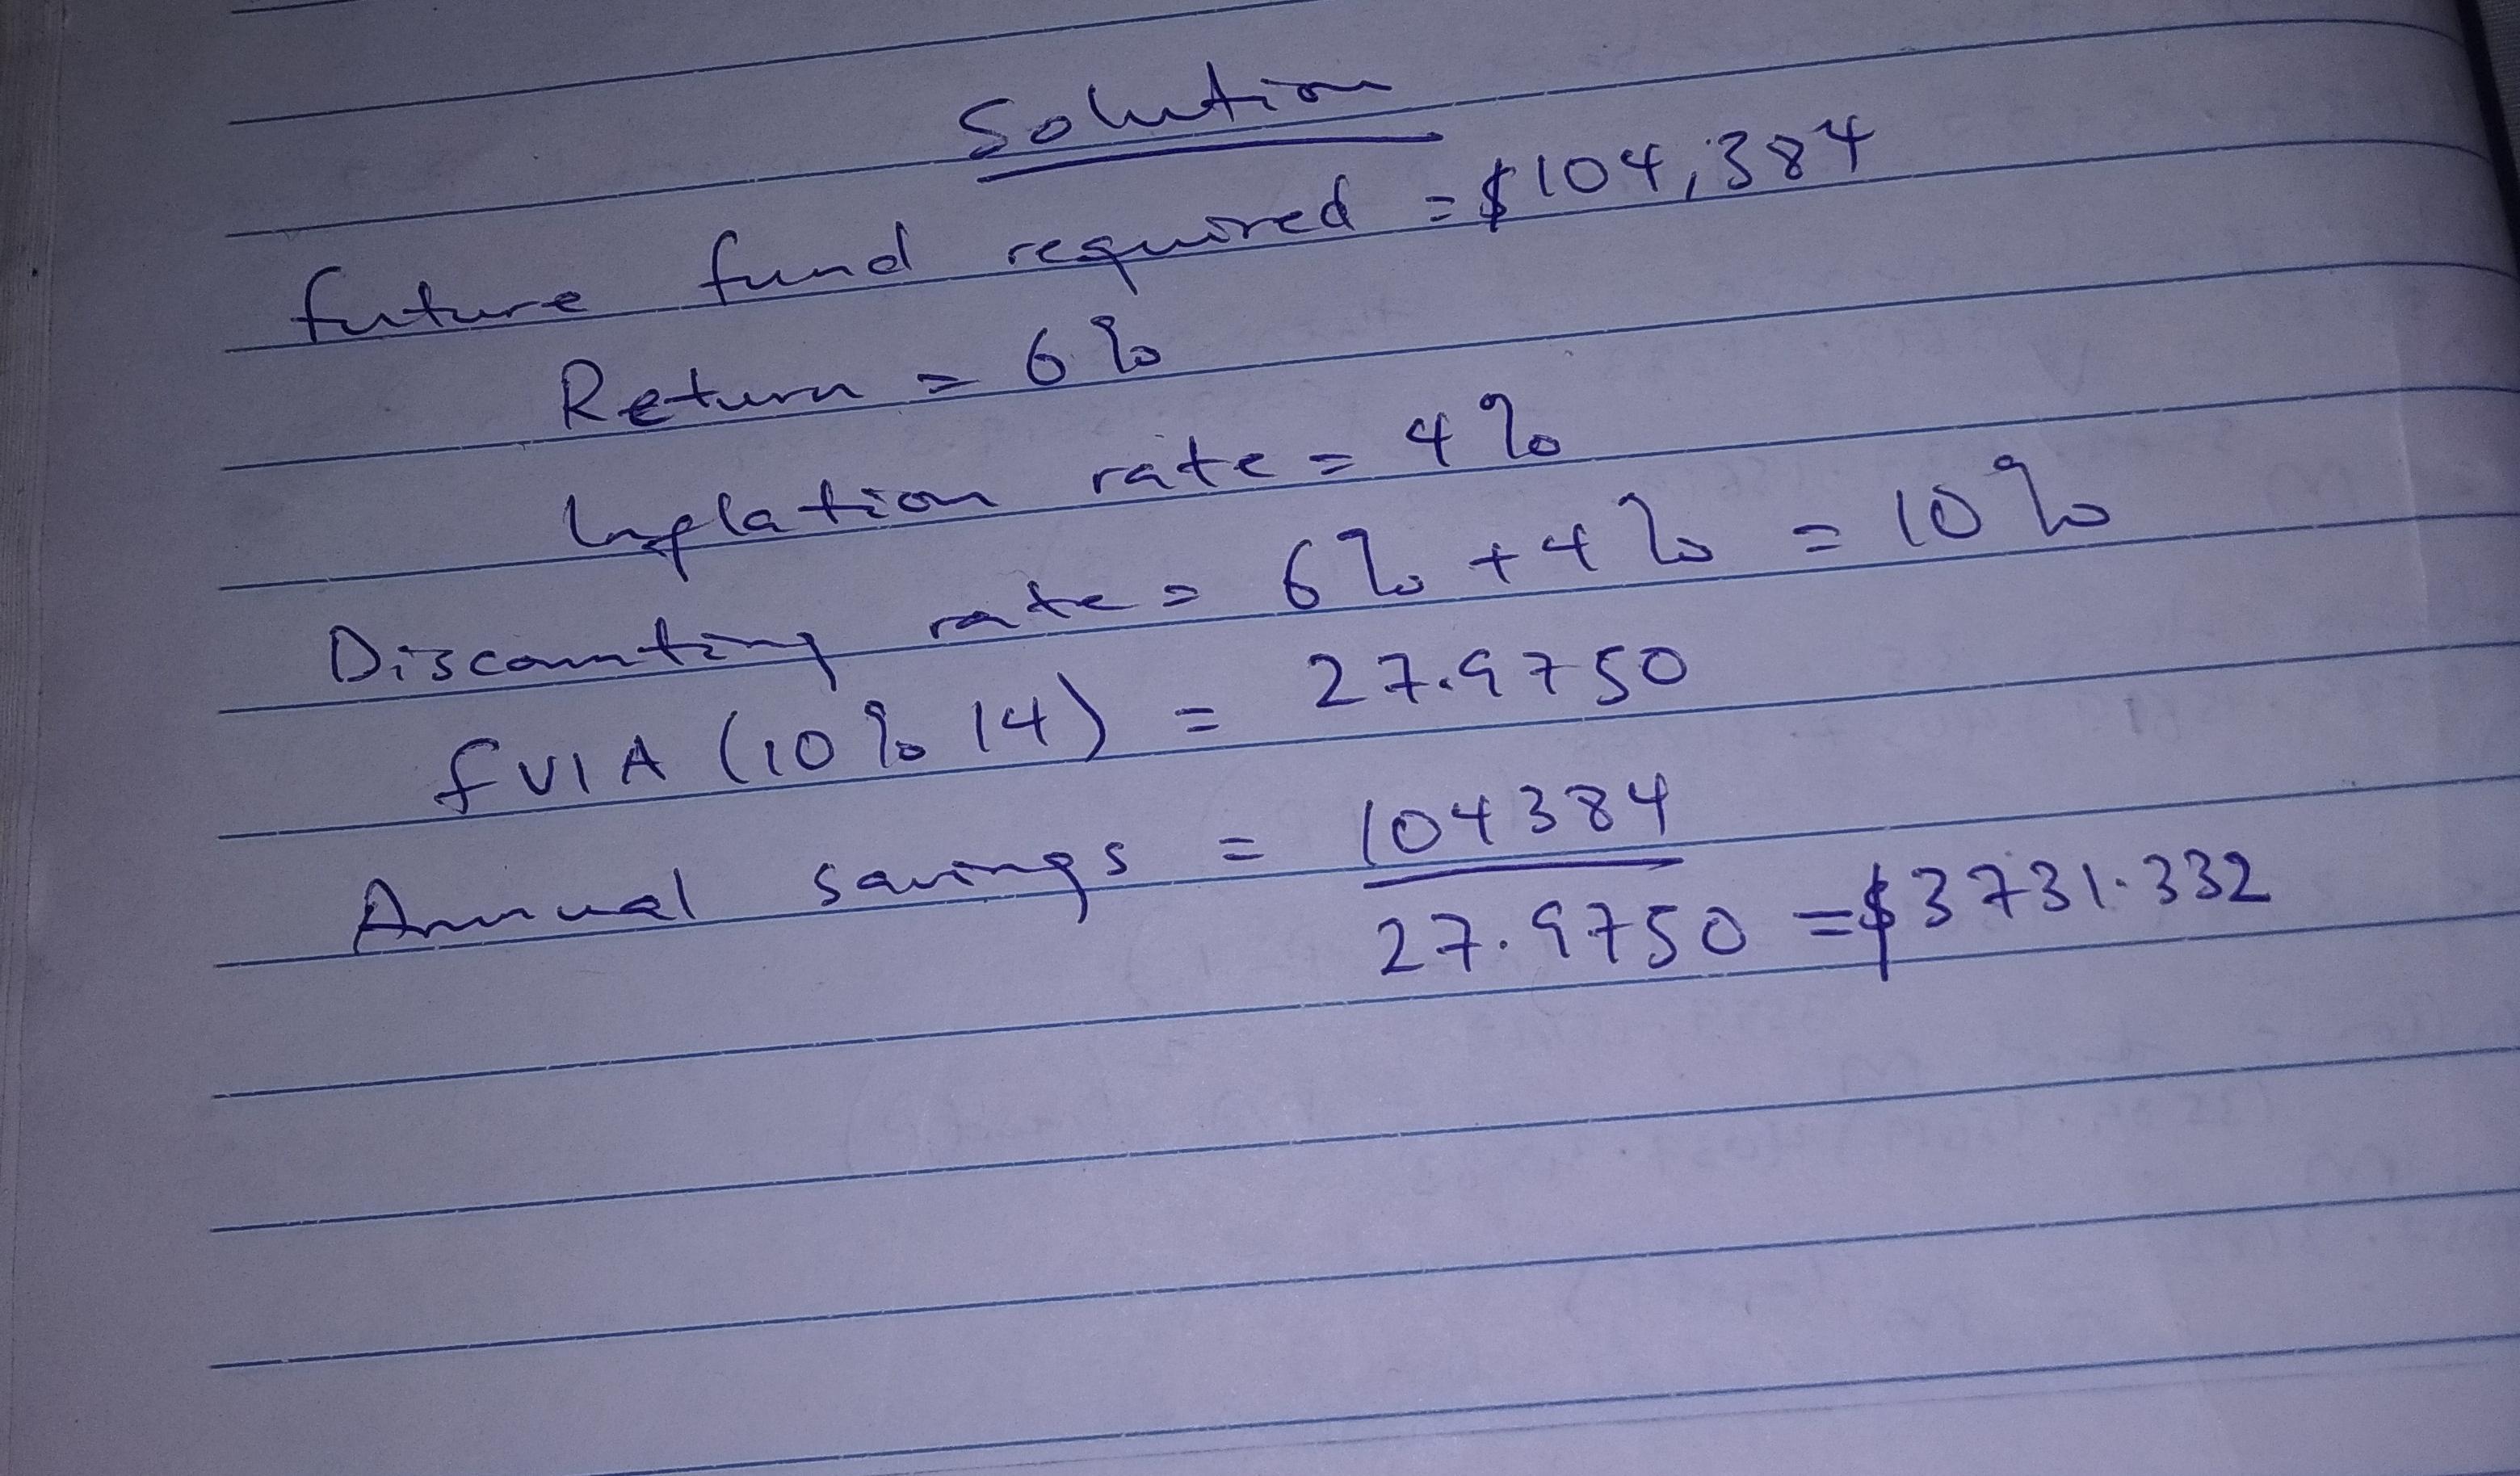 Solution
future fund required = $104,384
Return = 6%
Inflation rate = 4%
Discounting rate = 6% + 4% = 10%
FVIA (10% 14) = 27.9750
Annual savings = 104384
27.9750 = $3731.332